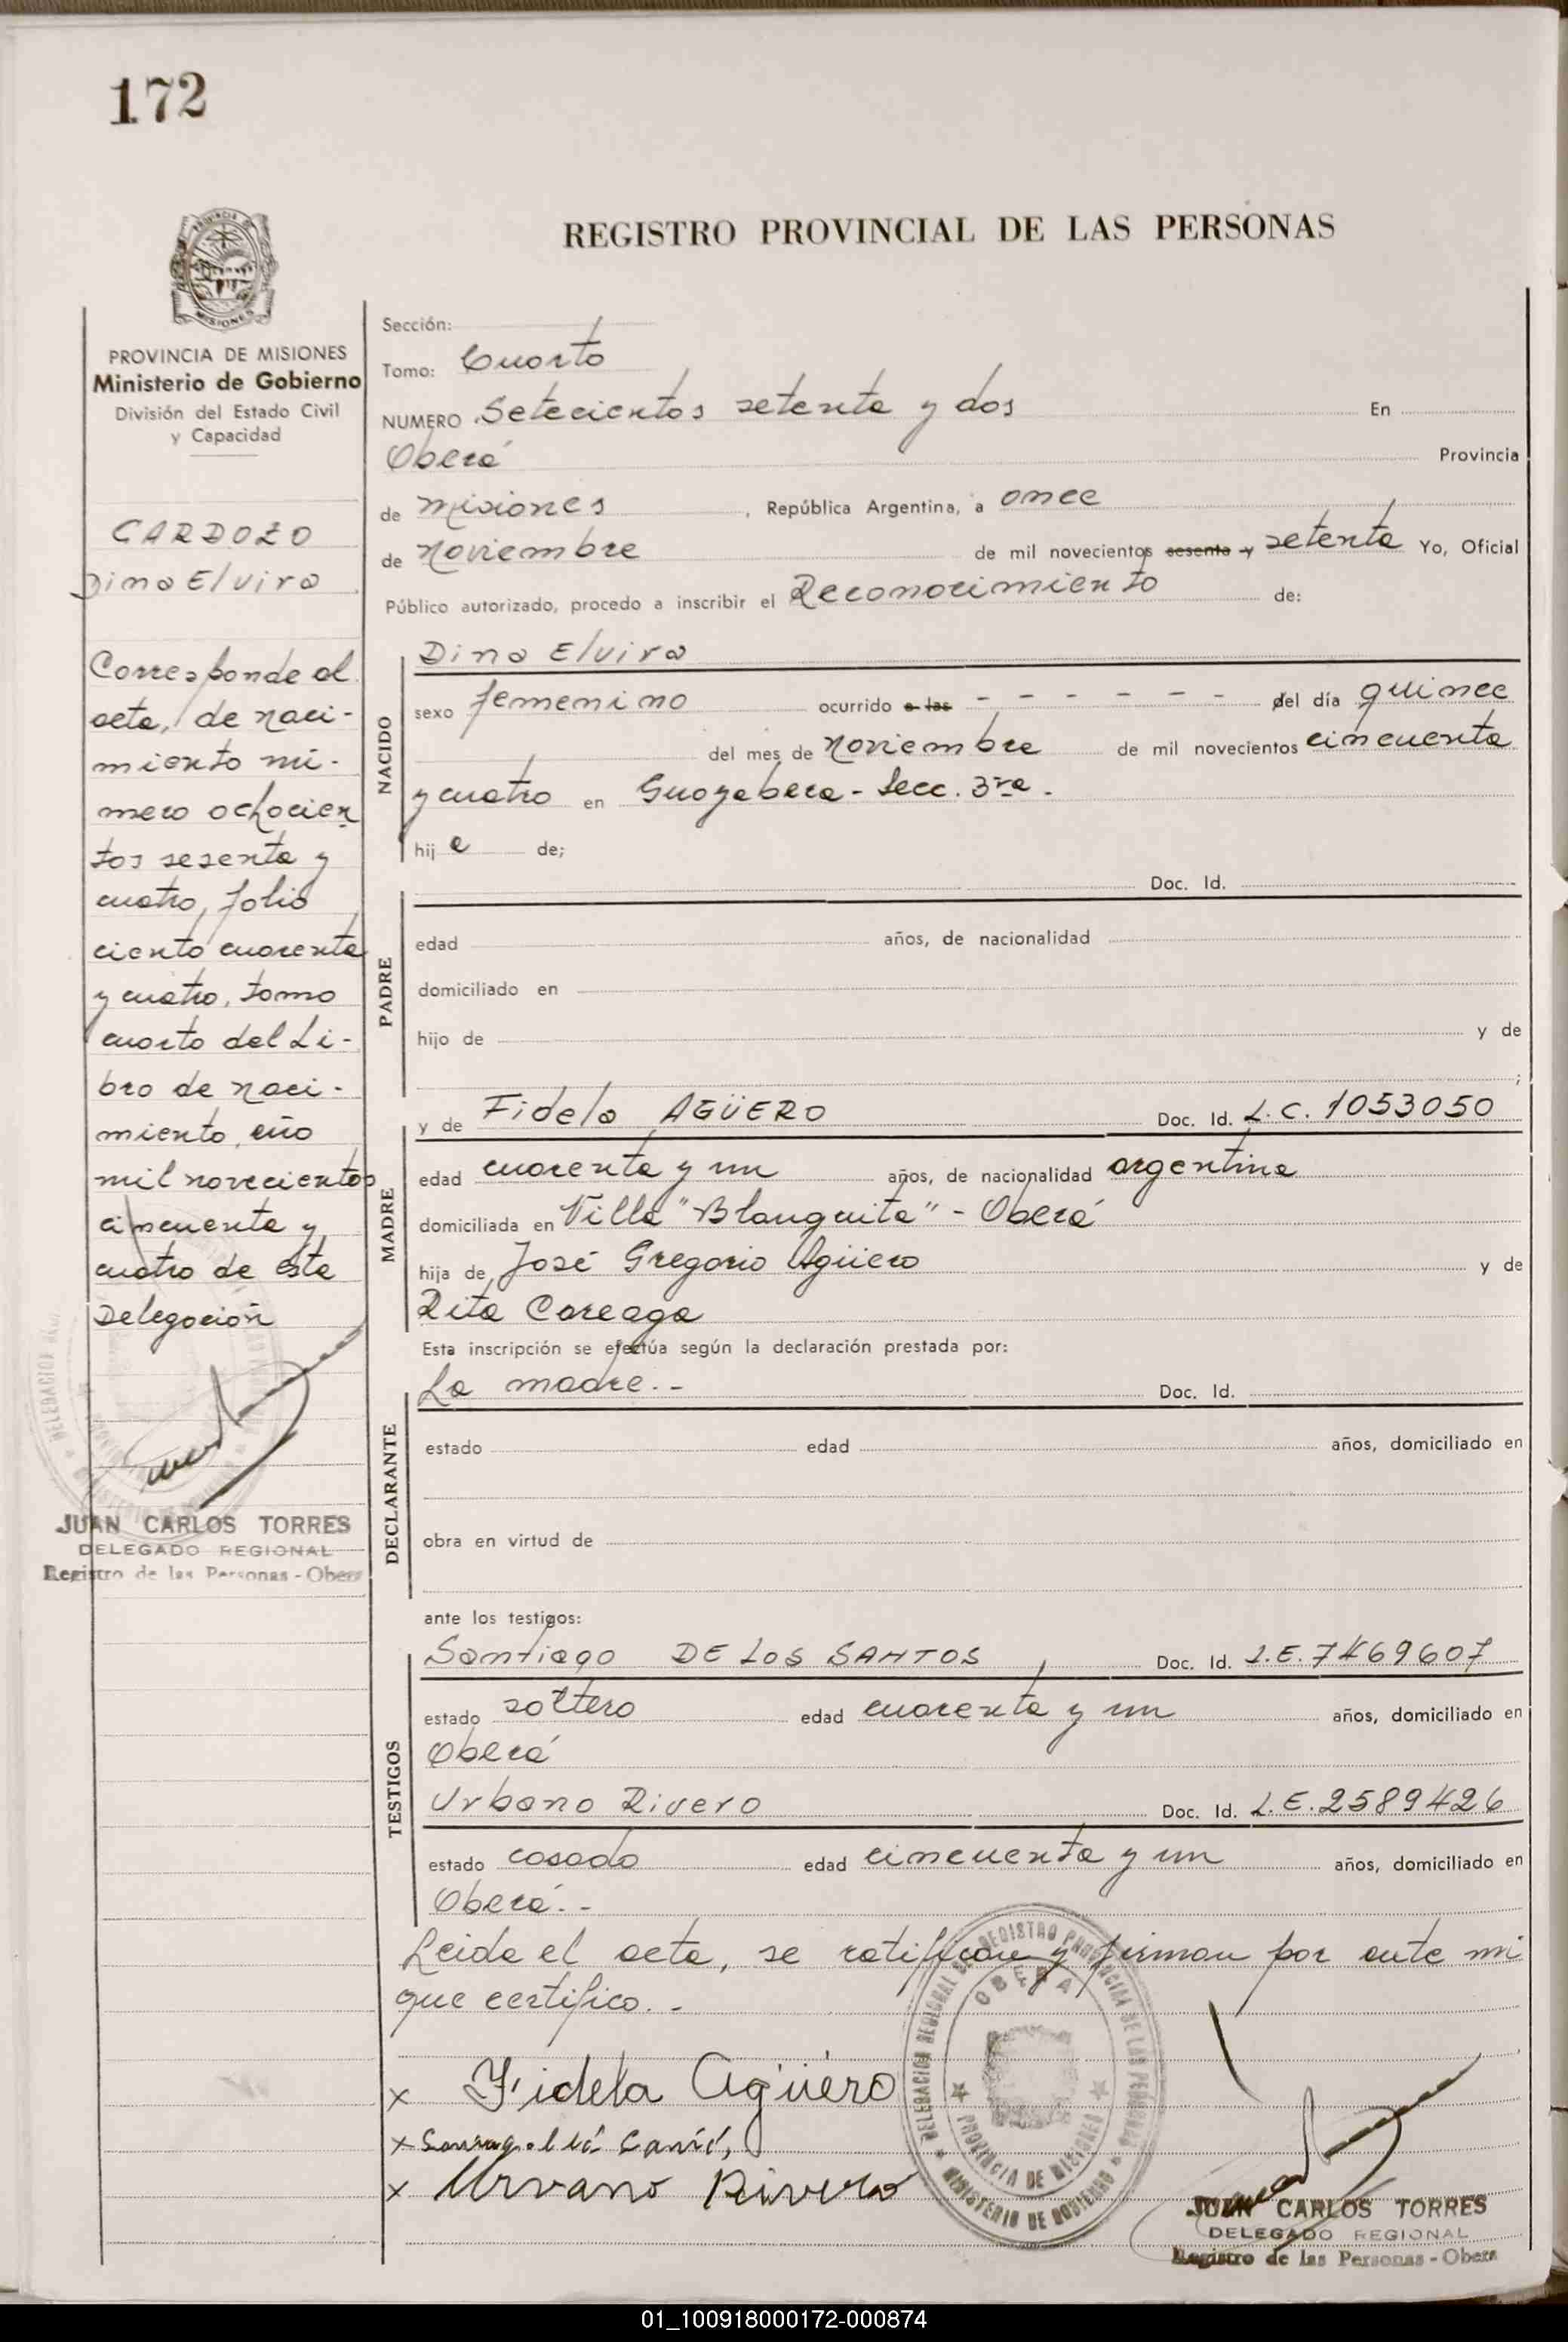 172
REGISTRO PROVINCIAL DE LAS PERSONAS
MISIONES
PROVINCIA DE MISIONES
Ministerio de Gobierno
División del Estado Civil
y Capacidad
CARDOZO
Dina Elvira
Corresponde al
acta, de naci-
miento nú-
mero ochocien
tos sesenta y
cuatro, folio
ciento cuarenta
y cuatro, tomo
cuarto del Li-
bro de naci-
miento, año
mil novecientos
cincuenta y
cuatro de esta
Delegación
JUAN CARLOS TORRES
DELEGADO REGIONAL
Registro de las Personas - Obera
Sección:
Tomo: Cuarto
NUMERO Setecientos setenta y dos En
Oberá Provincia
de Misiones, República Argentina, a once
de Noviembre de mil novecientos sesenta y setenta Yo, Oficial
Público autorizado, procedo a inscribir el Reconocimiento de:
NACIDO
Dina Elvira
sexo femenino ocurrido a las - - - - - - del día quince
del mes de noviembre de mil novecientos cincuenta
y cuatro en Guayabera - Secc. 3ra.
hij a de;
PADRE
Doc. Id.
edad años, de nacionalidad
domiciliado en
hijo de y de
;
MADRE
y de Fidela AGÜERO Doc. Id. L.C. 1053050
edad cuarenta y un años, de nacionalidad argentina
domiciliada en Villa "Blanquita" - Oberá
hija de José Gregorio Agüero y de
Rita Careaga
Esta inscripción se efectúa según la declaración prestada por:
DECLARANTE
La madre.- Doc. Id.
estado edad años, domiciliado en
obra en virtud de
ante los testigos:
TESTIGOS
Santiago DE LOS SANTOS Doc. Id. L.E. 7469607
estado soltero edad cuarenta y un años, domiciliado en
Oberá
Urbano Rivero Doc. Id. L.E. 2589426
estado casado edad cincuenta y un años, domiciliado en
Oberá.-
Leida el acta, se ratifican y firman por ante mi
que certifico.-
x Fidela Agüero
x
x Urvano Rivero
DELEGACION REGIONAL DEL REGISTRO PROVINCIAL DE LAS PERSONAS
OBERA
PROVINCIA DE MISIONES
MINISTERIO DE GOBIERNO
JUAN CARLOS TORRES
DELEGADO REGIONAL
Registro de las Personas - Obera
01_100918000172-000874